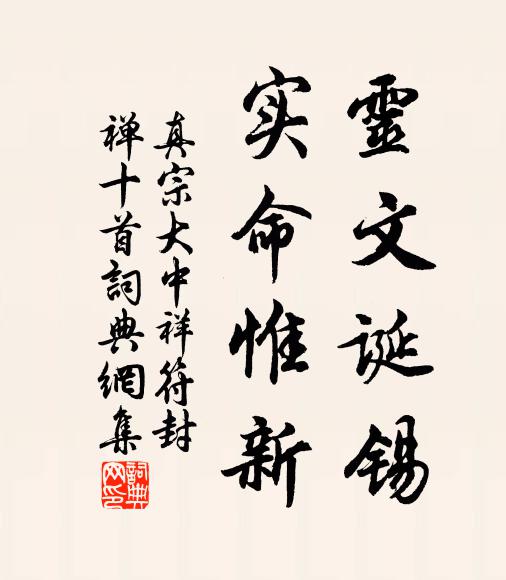 靈文诞锡
实命惟新
真宗大中祥符封
禅十首詞典網集
詞典网印